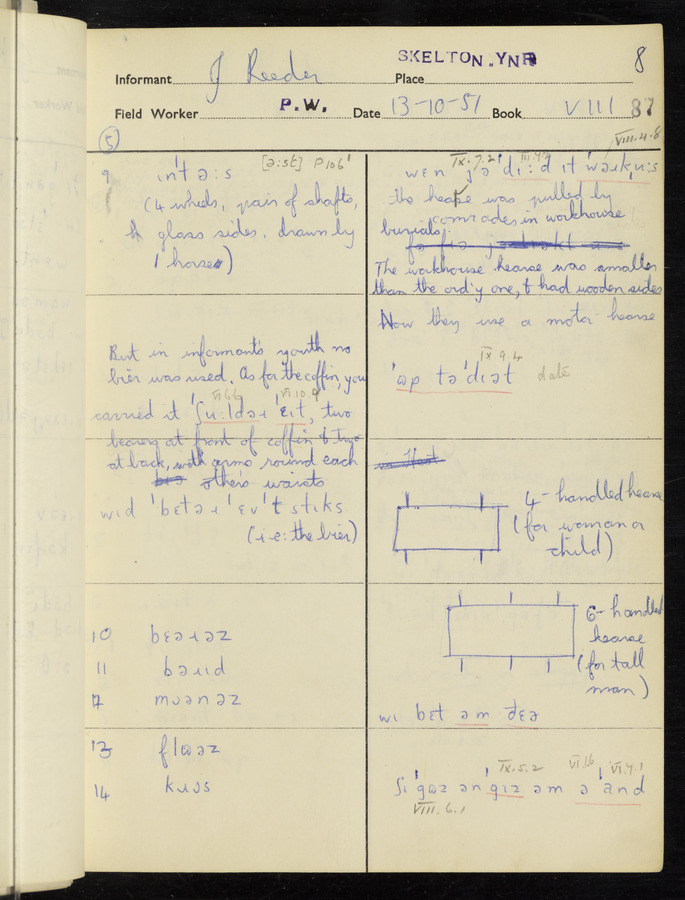 SKELTON. YNR
8
Informant J Reeder Place
Field Worker P.W. Date 13-10-51 Book VIII 87
5
VIII.4.8
9 in't ə:s [ə:st] P106'
(4 wheels, pair of shafts,
glass sides. drawn by
1 horse)
But in informant's youth no
bier was used. As for the coffin, you
VI.6.6 VI.10.9
carried it 'ʃu:ldəɹ 'ɛit, two
bearing at front of coffin & two
at back, with arms round each
others waists
wid 'bɛtəɹ 'ɛv 't stiks
(i.e: the bier)
10 bɛəɹəz
11 bəɹid
12 mɔənəz
13 flɷəz
14 kɹɔs
IX.7.2
wɛn jə 'di:d it 'wəɹkɹu:s
the hearse was pulled by
comrades in workhouse
burials.
The workhouse hearse was smaller
than the ord'y one, & had wooden sides
Now they use a motor hearse
IX 9.4
'ɷp tə 'diət date
4-handled hearse
(for woman or
child)
6-handled
hearse
(for tall
man)
wi bɛt əm ðɛə
IX.5.2 VI.16 VI.7.1
ʃi 'gɷz ən giz əm ə 'and
VIII.6.1